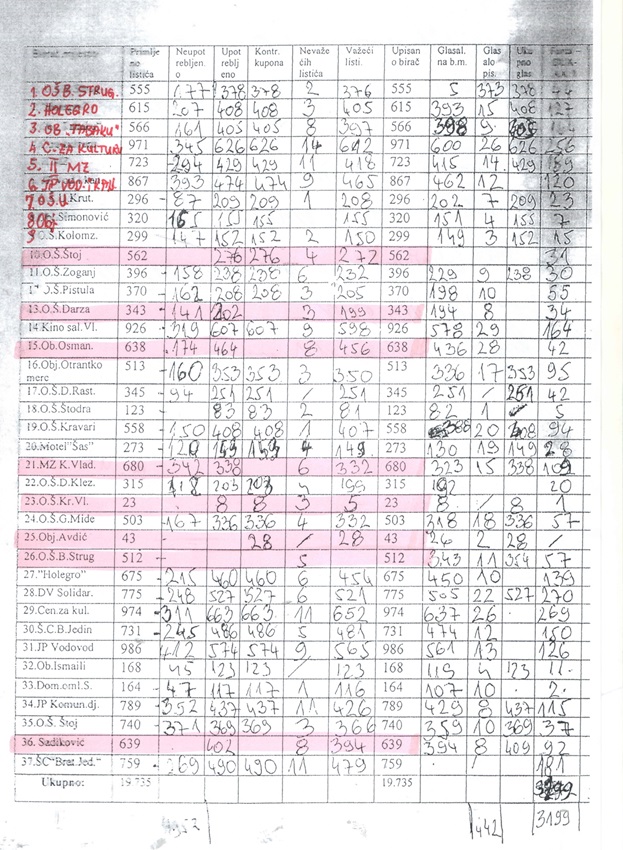 Primlje no listića Neupot rebljen. o Upot reblj eno Kontr. kupona Nevaže ćih listića Važeći listi. Upisan o birač Glasal. na b.m. Glas alo pis. Uku pno glas
1. OŠ B. STRUG. 555 177 378 378 2 376 555 5 373 378 44
2. HOLEGRO 615 207 408 408 3 405 615 393 15 408 127
3. OB. "TABAKU" 566 161 405 405 8 397 566 398 9 405
4 C. ZA KULTURU 971 345 626 626 14 612 971 600 26 626 256
5. II MZ 723 294 429 429 11 418 723 415 14 429 189
6. JP VOD. 867 393 474 474 9 465 867 462 12 120
7. OŠ U. Krut. 296 - 87 209 209 1 208 296 202 7 209 23
8 Obj. Simonović 320 165 155 155 155 320 151 4 155 7
9 O.Š.Kolomz. 299 - 147 152 152 2 150 299 149 3 152 15
10.O.Š.Štoj 562 276 276 4 272 562 31
11.O.Š.Zoganj 396 - 158 238 238 6 232 396 229 9 238 30
12 O.Š.Pistula 370 - 162 208 208 3 205 370 198 10 55
13.O.Š.Darza 343 - 141 202 3 199 343 194 8 34
14.Kino sal.Vl. 926 - 319 607 607 9 598 926 578 29 164
15.Ob.Osman. 638 - 174 464 8 456 638 436 28 42
16.Obj.Otrantko merc 513 - 160 353 353 3 350 513 336 17 353 95
17.O.Š.D.Rast. 345 - 94 251 251 / 251 345 251 / 251 42
18.O.Š.Štodra 123 - 83 83 2 81 123 82 1 5
19.O.Š.Kravari 558 - 150 408 408 1 407 558 388 20 408 94
20.Motel"Šas" 273 - 120 153 153 4 149 273 130 19 149 28
21.MZ K.Vlad. 680 - 342 338 6 332 680 323 15 338 109
22.O.Š.D.Klez. 315 118 203 203 4 199 315 192 20
23.O.Š.Kr.Vl. 23 8 8 3 5 23 8 / 8 1
24.O.Š.G.Mide 503 - 167 336 336 4 332 503 318 18 336 57
25.Obj.Avdić 43 28 / 28 43 26 2 28 /
26.O.Š.B.Strug 512 - 5 512 343 11 354 57
27."Holegro" 675 - 215 460 460 6 454 675 450 10 139
28.DV Solidar. 775 - 248 527 527 6 521 775 505 22 527 270
29.Cen.za kul. 974 - 311 663 663 11 652 974 637 26 269
30.Š.C.B.Jedin 731 - 245 486 486 5 481 731 474 12 150
31.JP Vodovod 986 412 574 574 9 565 986 561 13 126
32.Ob.Ismaili 168 45 123 123 / 123 168 119 4 123 11
33.Dom.oml.S. 164 - 47 117 117 1 116 164 107 10 2
34.JP Komun.dj. 789 - 352 437 437 11 426 789 429 8 437 115
35.O.Š. Štoj 740 - 371 369 369 3 366 740 359 10 369 37
36. Sadiković 639 402 8 394 639 394 8 409 92
37.ŠC"Brat.Jed." 759 - 269 490 490 11 479 759 / 181
Ukupno: 19.735 19.735
442 3199